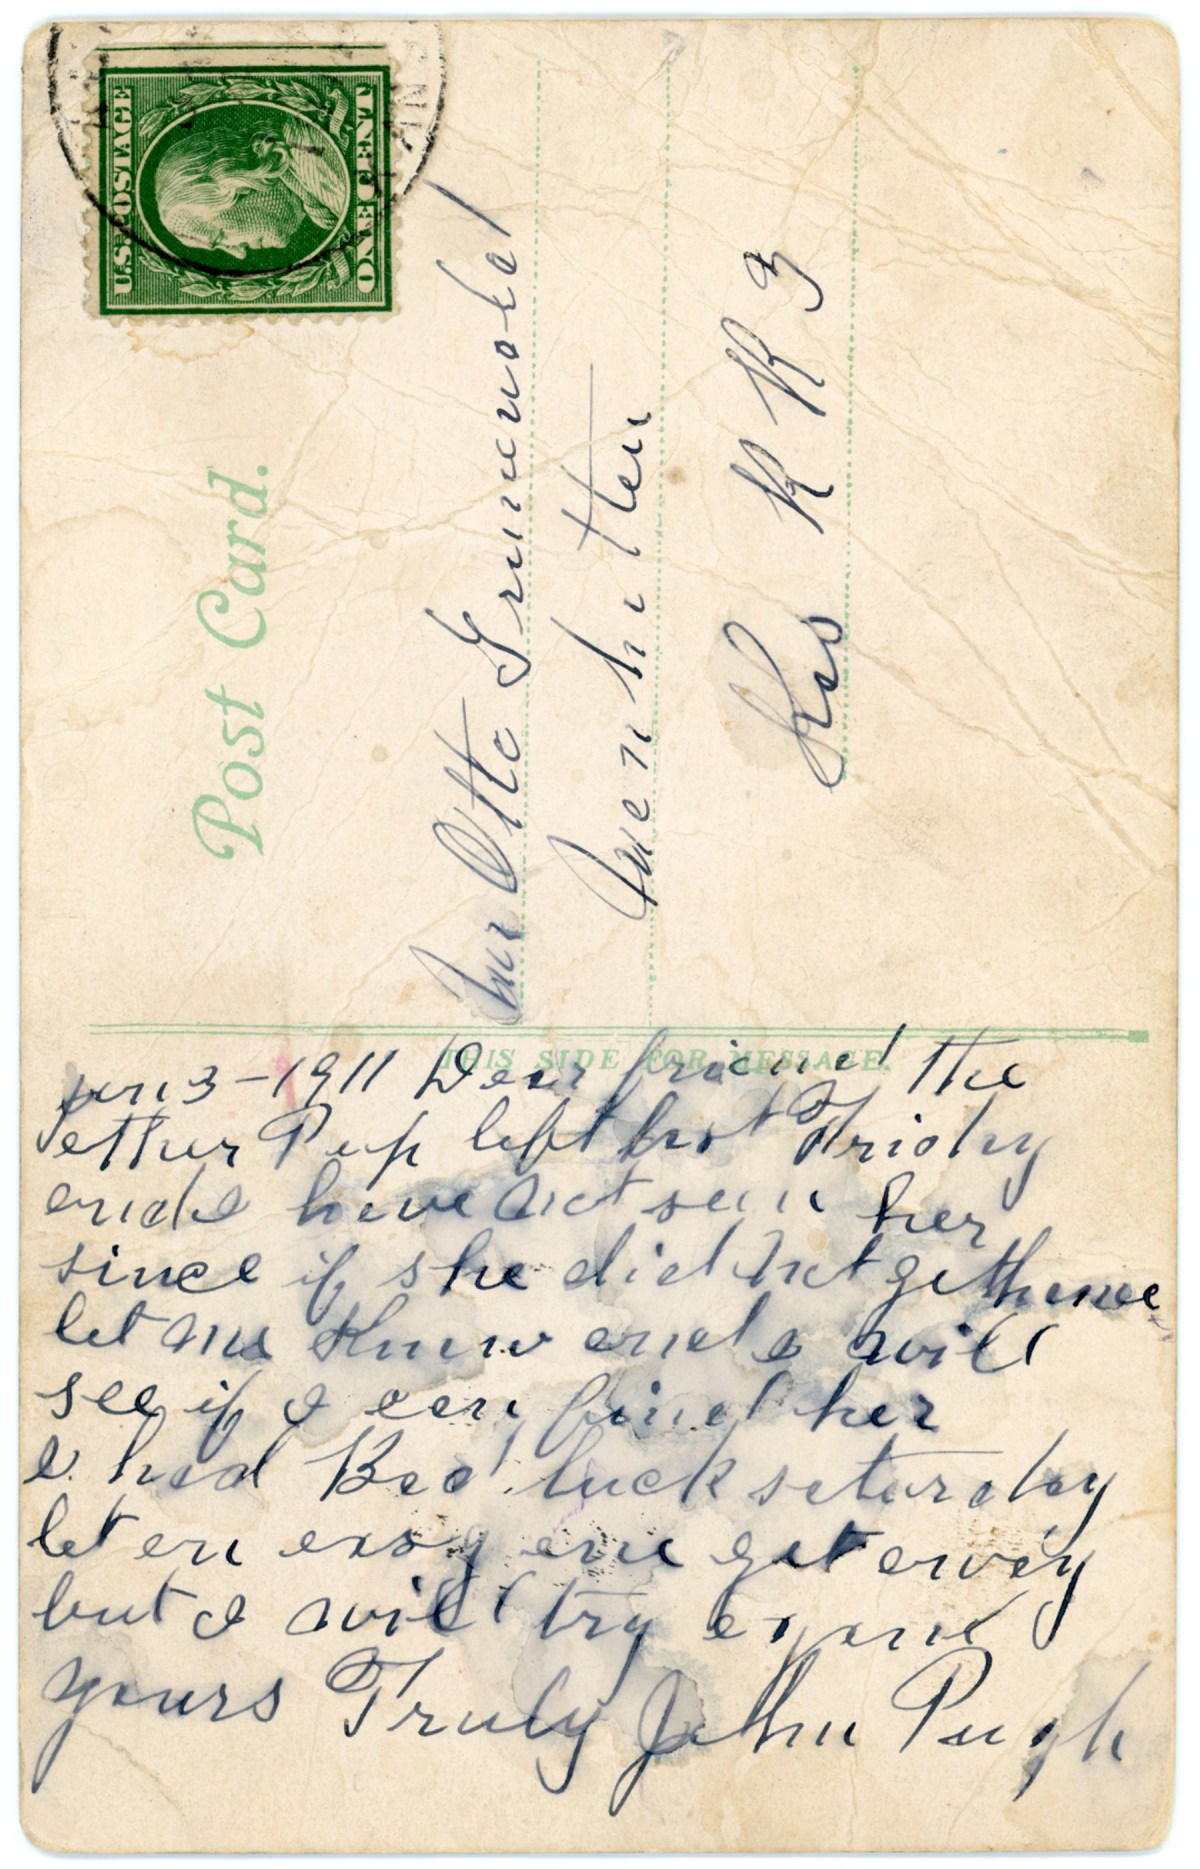 U.S. POSTAGE
ONE CENT
Post Card.
mr Otto Grunewald
Manhatten
Kas R R 3
THIS SIDE FOR MESSAGE.
jan 3-1911 Dear friend the
other Pup left hot Friday
and I have not seen her
since if she did not get home
let me Know and I will
see if I can find her
I had Bad luck saturday
let an easy one get away
but I will try again
yours Truly John Pugh